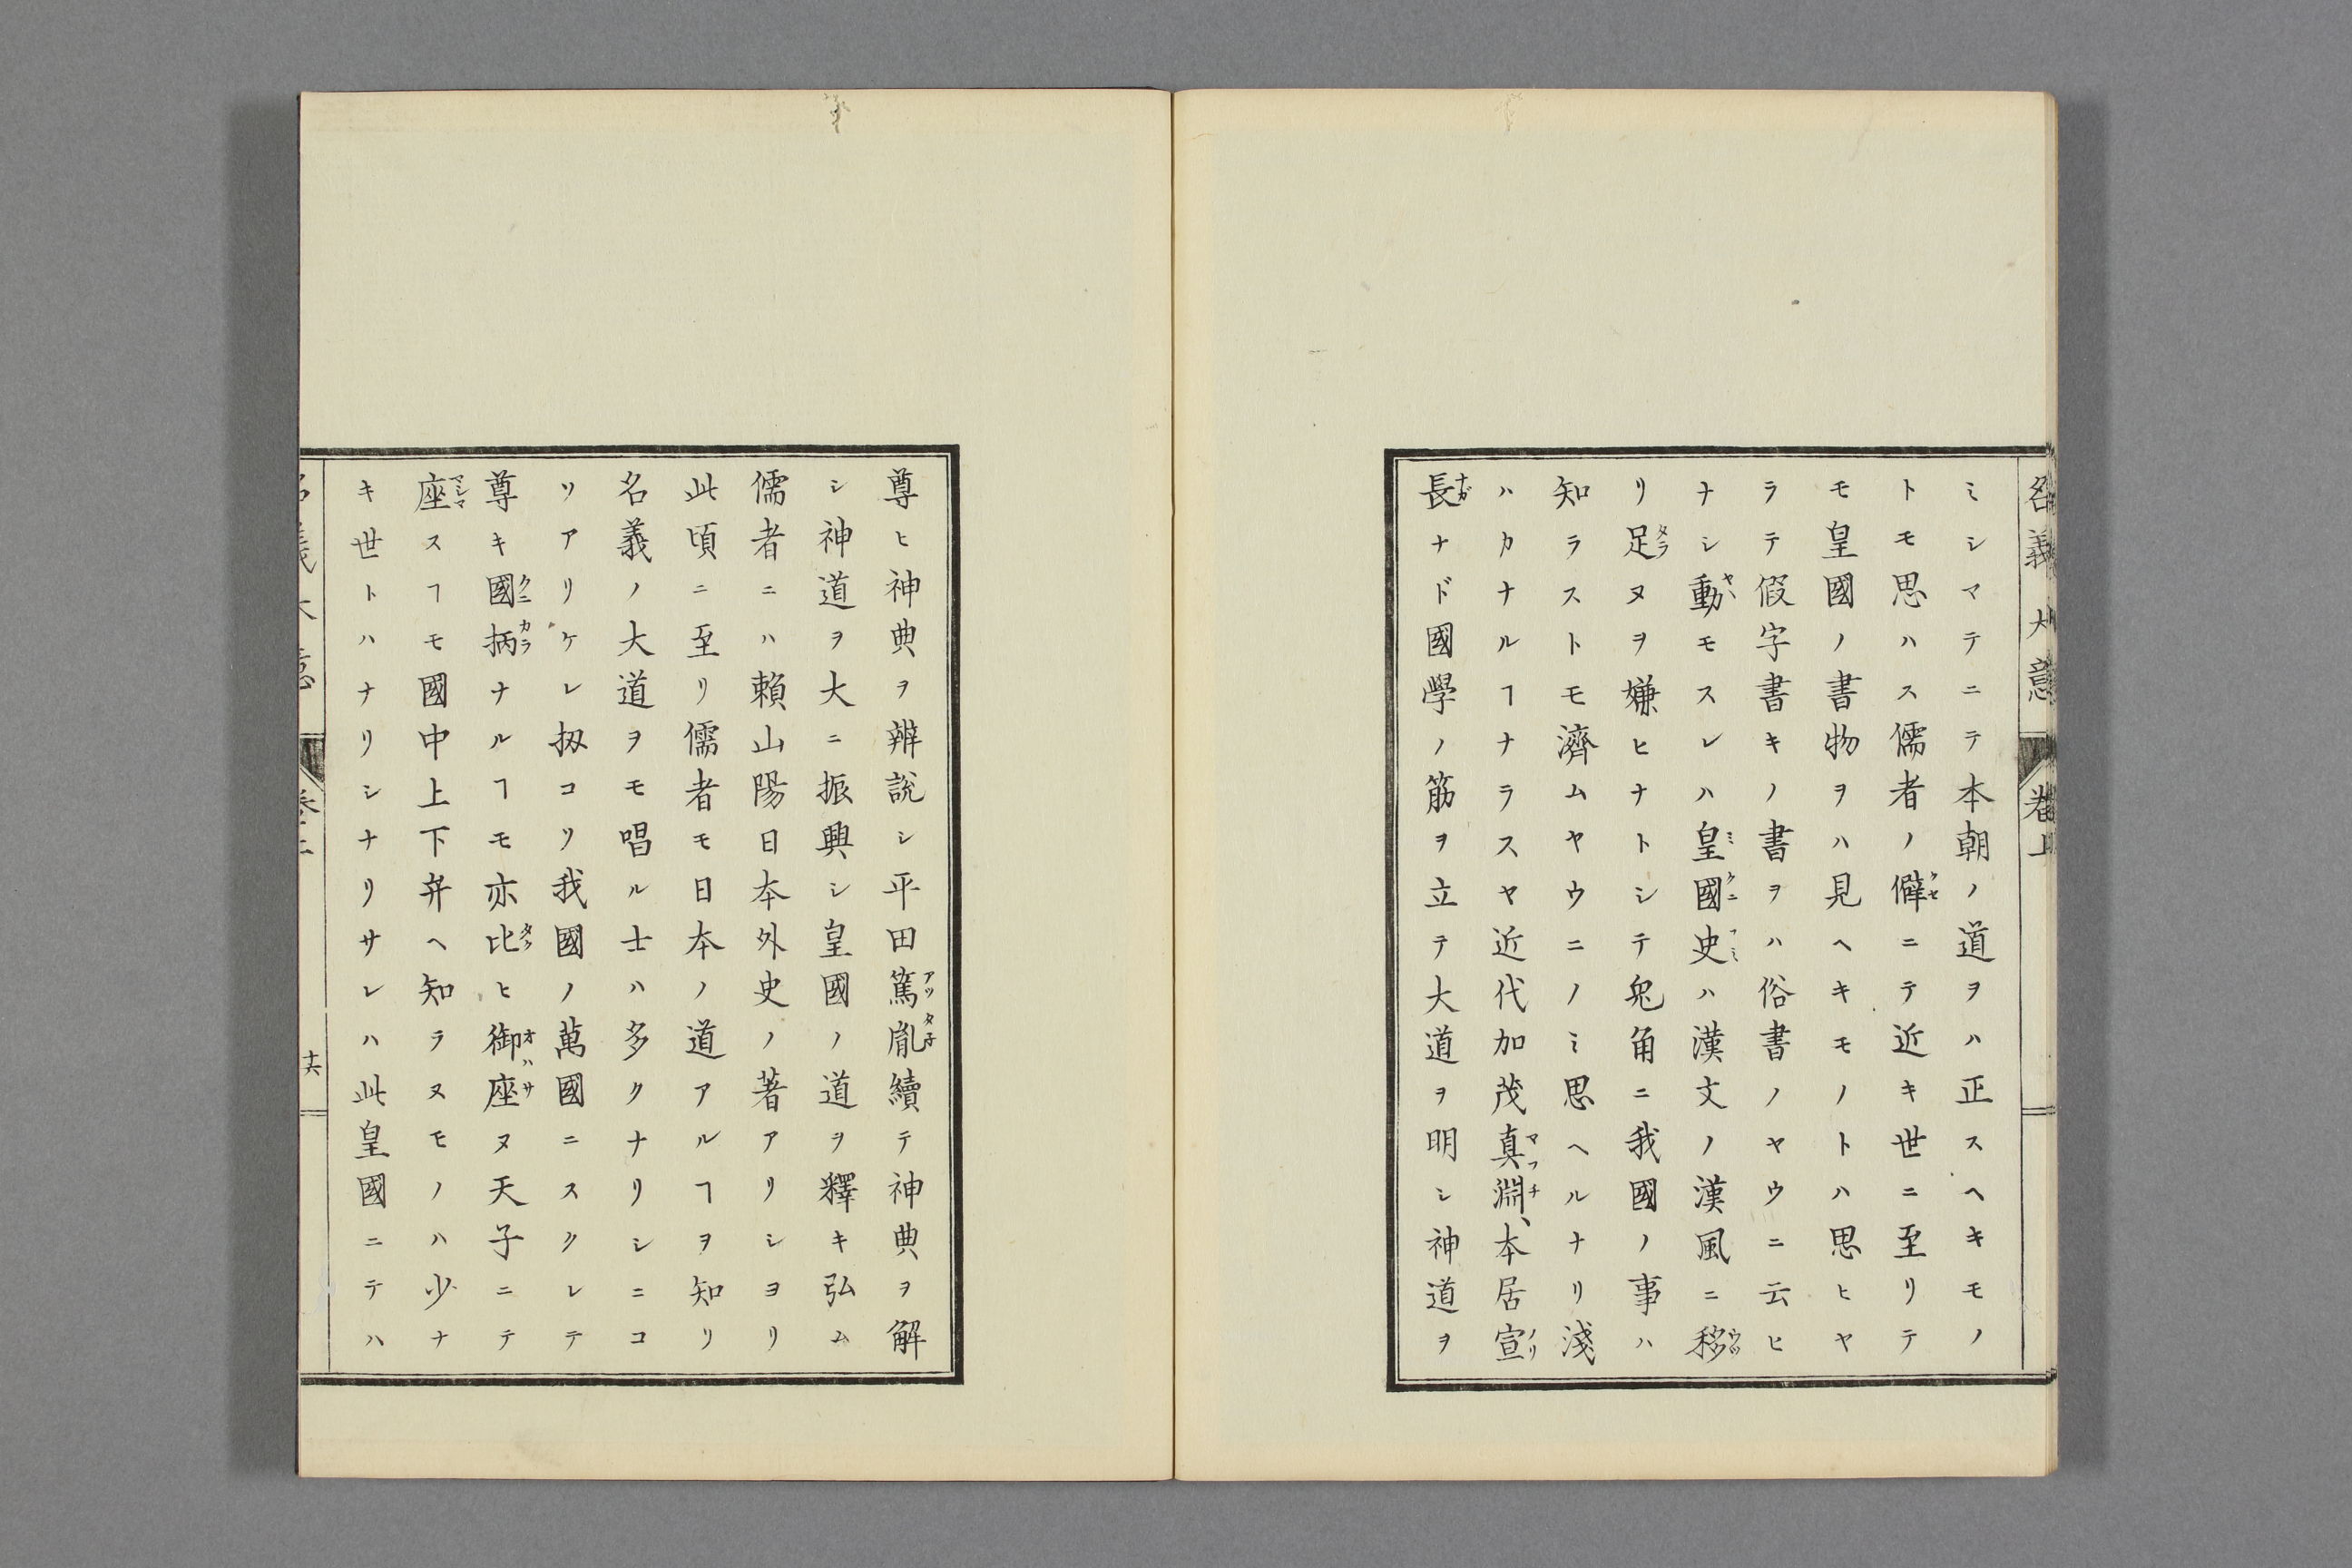 名義大意
卷上
ミシマテニテ本朝ノ道ヲハ正スヘキモノ
トモ思ハス儒者ノ僻ニテ近キ世ニ至リテ
モ皇國ノ書物ヲハ見ヘキモノトハ思ヒヤ
ラテ假字書キノ書ヲハ俗書ノヤウニ云ヒ
ナシ動モスレハ皇國史ハ漢文ノ漢風ニ移
リ足ヌヲ嫌ヒナトシテ兔角ニ我國ノ事ハ
知ラストモ濟ムヤウニノミ思ヘルナリ淺
ハカナルヿナラスヤ近代加茂真淵、本居宣
長ナド國學ノ筋ヲ立テ大道ヲ明シ神道ヲ
尊ヒ神典ヲ辨説シ平田篤胤續テ神典ヲ解
シ神道ヲ大ニ振興シ皇國ノ道ヲ釋キ弘ム
儒者ニハ賴山陽日本外史ノ著アリシヨリ
此頃ニ至リ儒者モ日本ノ道アルヿヲ知リ
名義ノ大道ヲモ唱ル士ハ多クナリシニコ
ソアリケレ扨コソ我國ノ萬國ニスクレテ
尊キ國柄ナルヿモ亦比ヒ御座ヌ天子ニテ
座スヿモ國中上下弁ヘ知ラヌモノハ少ナ
キ世トハナリシナリサレハ此皇國ニテハ
十六